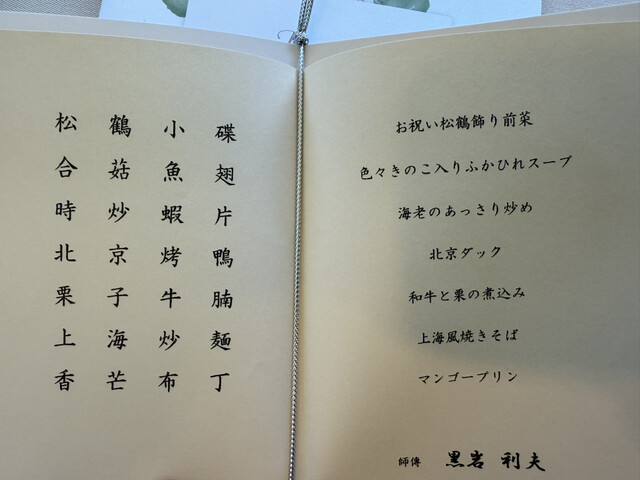 松鶴小碟
合菇魚翅
時炒蝦片
北京烤鴨
栗子牛腩
上海炒麵
香芒布丁
お祝い松鶴飾り前菜
色々きのこ入りふかひれスープ
海老のあっさり炒め
北京ダック
和牛と栗の煮込み
上海風焼きそば
マンゴープリン
師傳 黒岩 利夫